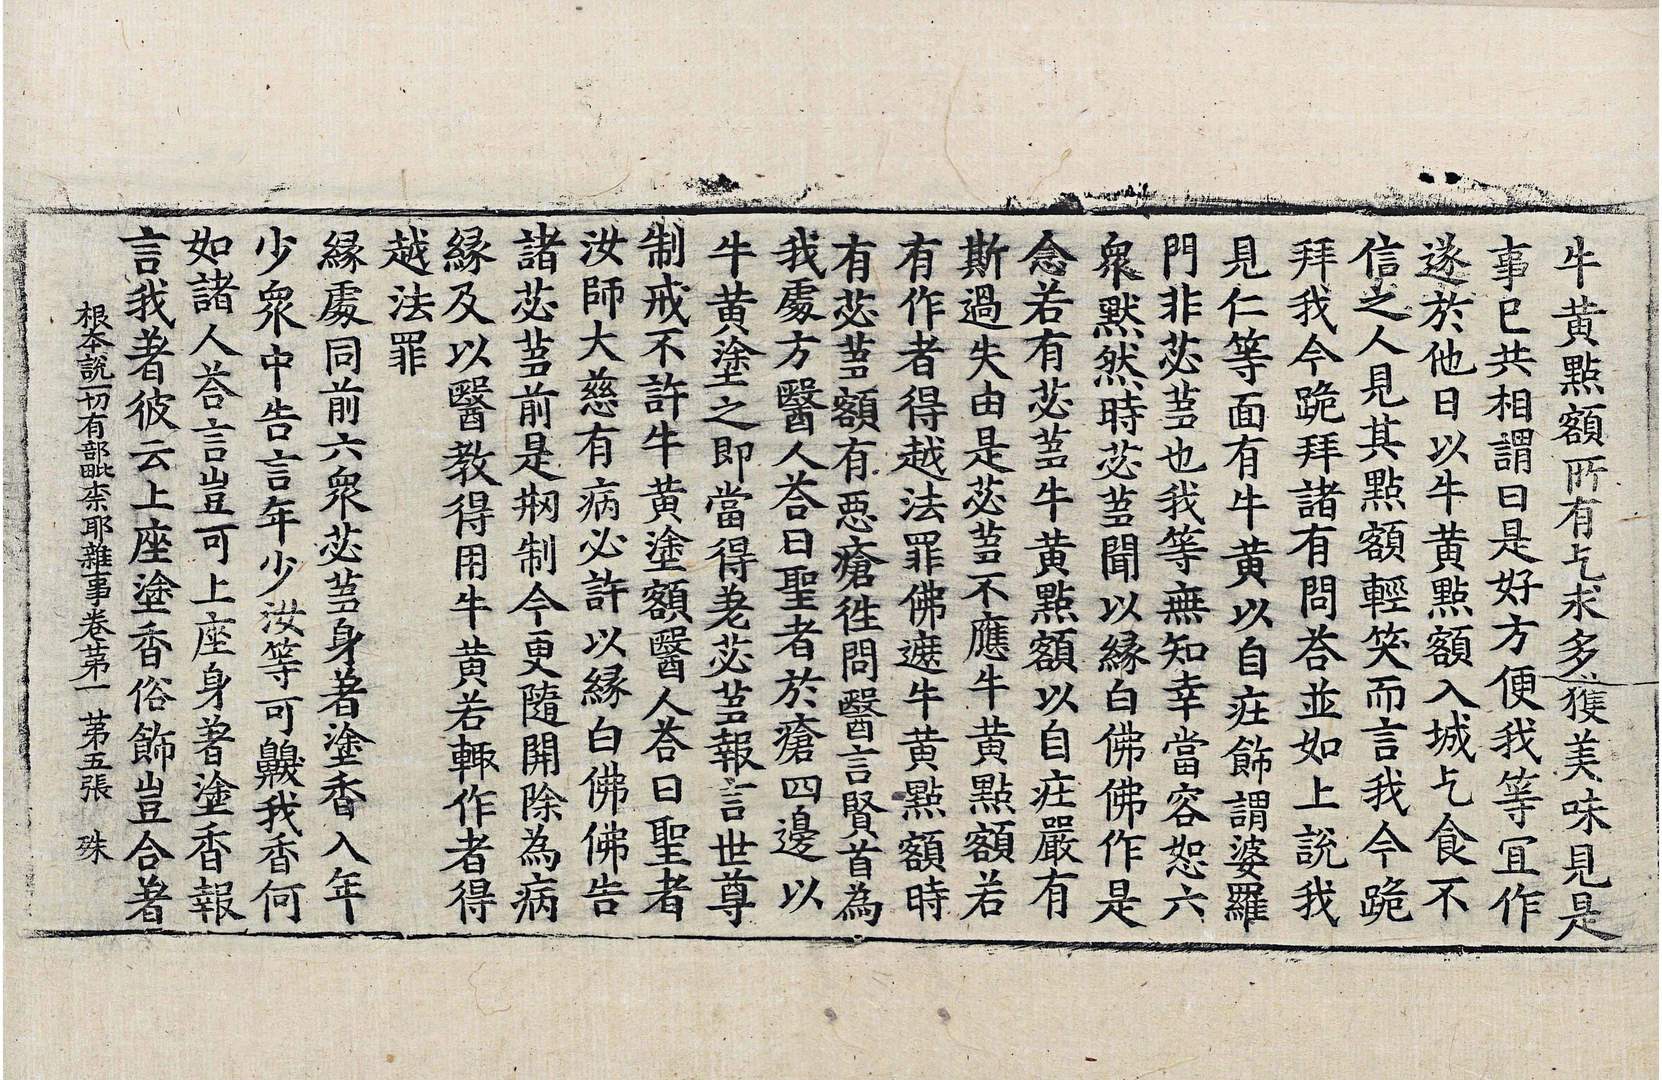 牛黄點額所有乞求多獲美味見是
事已共相謂曰是好方便我等宜作
遂於他日以牛黄點額入城乞食不
信之人見其點額輕笑而言我今跪
拜我今跪拜諸有問荅並如上説我
見仁等面有牛黄以自莊飾謂婆羅
門非苾蒭也我等無知幸當容恕六
衆默然時苾蒭聞以縁白佛佛作是
念若有苾蒭牛黄點額以自莊嚴有
斯過失由是苾蒭不應牛黄點額若
有作者得越法罪佛遮牛黄點額時
有苾蒭額有惡瘡徃問醫言賢首為
我處方醫人荅曰聖者於瘡四邊以
牛黄塗之即當得差苾蒭報言世尊
制戒不許牛黄塗額醫人荅曰聖者
汝師大慈有病必許以縁白佛佛告
諸苾蒭前是剏制今更隨開除為病
縁及以醫教得用牛黄若輙作者得
越法罪
縁處同前六衆苾蒭身著塗香入年
少衆中告言年少汝等可齅我香何
如諸人荅言豈可上座身著塗香報
言我著彼云上座塗香俗飾豈合著
根本説一切有部毗柰耶雜事卷第一 第五張 殊